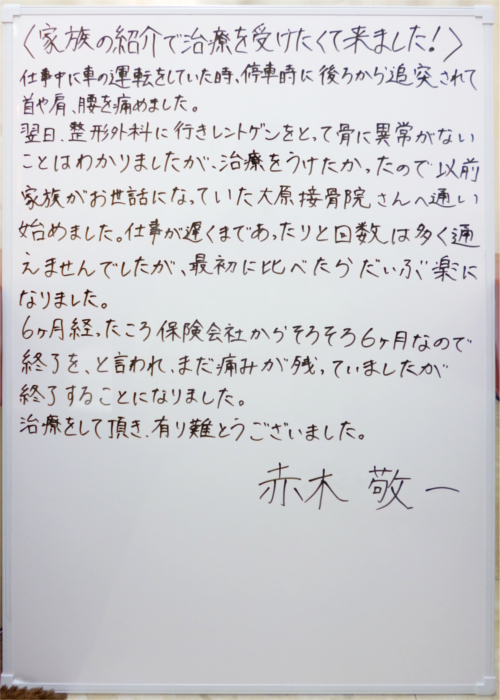 〈家族の紹介で治療を受けたくて来ました！〉
仕事中に車の運転をしていた時、停車時に後ろから追突されて
首や肩、腰を痛めました。
翌日、整形外科に行きレントゲンをとって骨に異常がない
ことはわかりましたが、治療をうけたかったので以前
家族がお世話になっていた大原接骨院さんへ通い
始めました。仕事が遅くまであったりと回数は多く通
えませんでしたが、最初に比べたらだいぶ楽に
なりました。
6ヶ月経ったころ保険会社からそろそろ6ヶ月なので
終了を、と言われ、まだ痛みが残っていましたが
終了することになりました。
治療をして頂き、有り難とうございました。
赤木 敬一